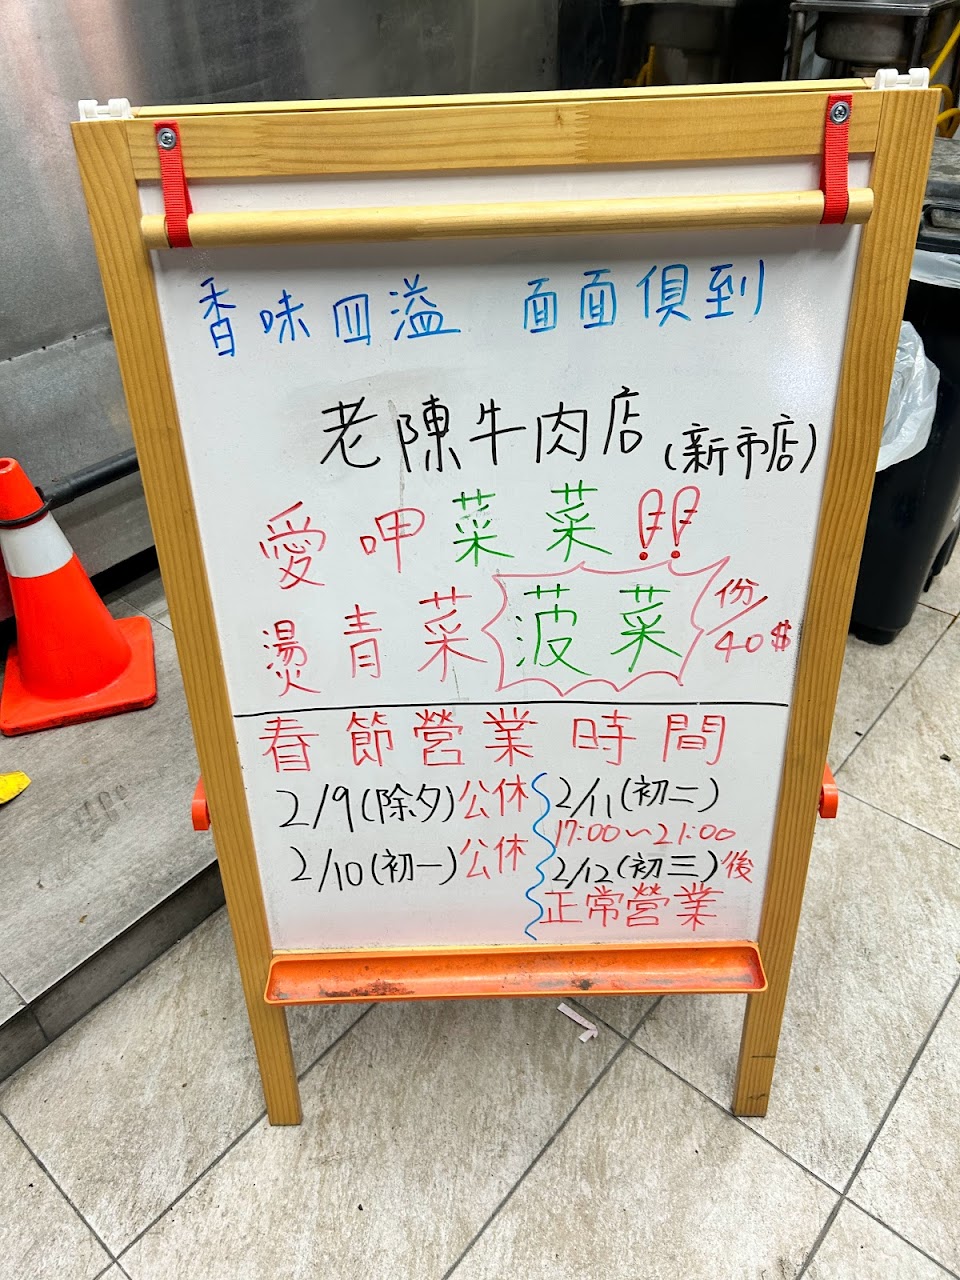 香味四溢 面面俱到
老陳牛肉店(新市店)
愛呷菜菜!!
燙青菜 菠菜 份/40$
春節營業時間
2/9(除夕)公休
2/10(初一)公休
2/11(初二)
17:00~21:00
2/12(初三)後
正常營業